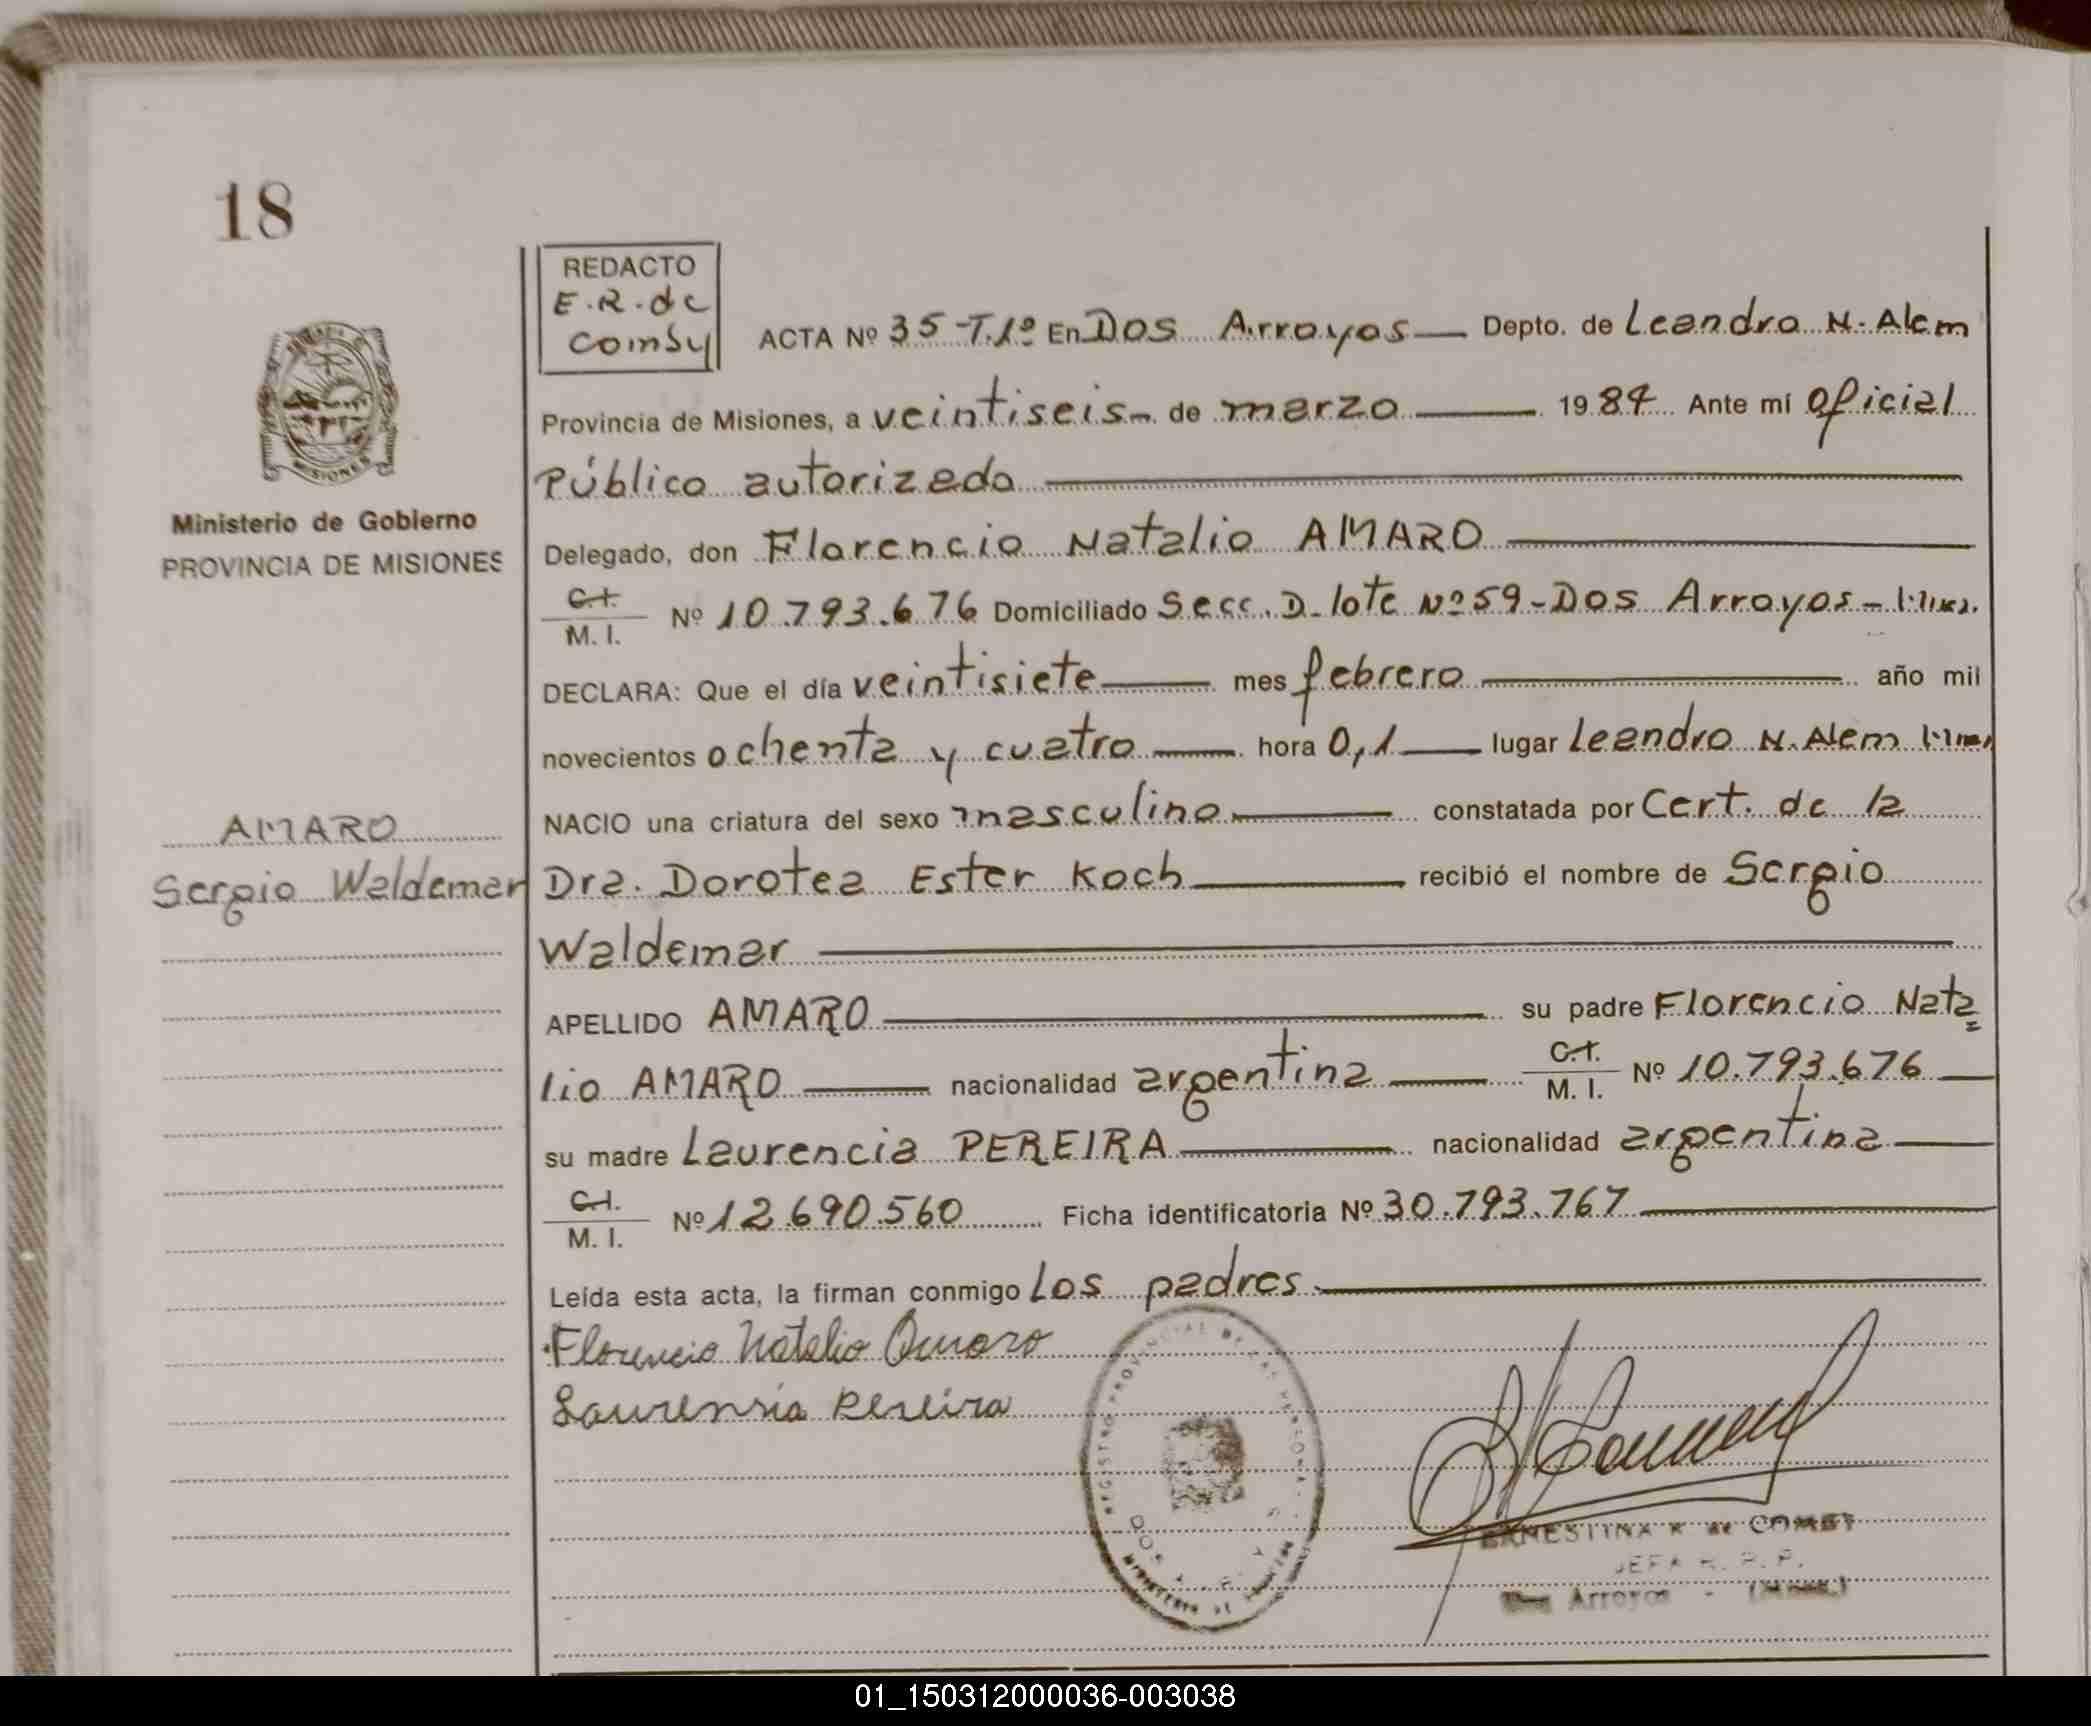 18
REDACTO
E.R.de
Comby
ACTA Nº 35-T.1º En Dos Arroyos Depto. de Leandro N. Alem
Provincia de Misiones, a veintiseis de marzo 1984 Ante mí oficial
Público autorizado
MISIONES
Ministerio de Gobierno
PROVINCIA DE MISIONES
Delegado, don Florencio Natalio AMARO
C.I.
M. I. Nº 10.793.676 Domiciliado Secc. D- lote Nº 59-Dos Arroyos-
DECLARA: Que el día veintisiete mes febrero año mil
novecientos ochenta y cuatro hora 0,1 lugar Leandro N. Alem
AMARO
Sergio Waldemar
NACIO una criatura del sexo masculino constatada por Cert. de la
Dra. Dorotea Ester Koch recibió el nombre de Sergio
Waldemar
APELLIDO AMARO su padre Florencio Nata
lio AMARO nacionalidad argentina C.I.
M. I. Nº 10.793.676
su madre Laurencia PEREIRA nacionalidad argentina
C.I.
M. I. Nº 12.690.560 Ficha identificatoria Nº 30.793.767
Leída esta acta, la firman conmigo Los padres.
Florencio Natalio Amaro
Laurensia Pereira
REGISTRO PROVINCIAL DE LAS PERSONAS
DOS
MINISTERIO DE
ERNESTINA R de COMBY
JEFA R. P. P.
Dos Arroyos - (Mnes.)
01_150312000036-003038